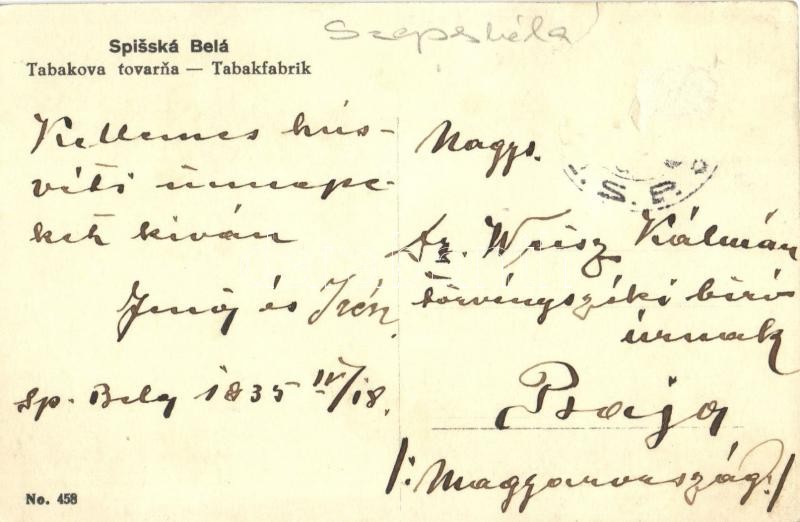 Szepesbéla
Spišská Belá
Tabakova tovarňa — Tabakfabrik
Kellemes hús-
véti ünnepe-
ket kiván
Jenő és Irén
Sp. Bela 1935 IV/18.
Nagys.
Dr. Weisz Kálmán
törvényszéki biró
úrnak
Baja
/: Magyarország :/
No. 458